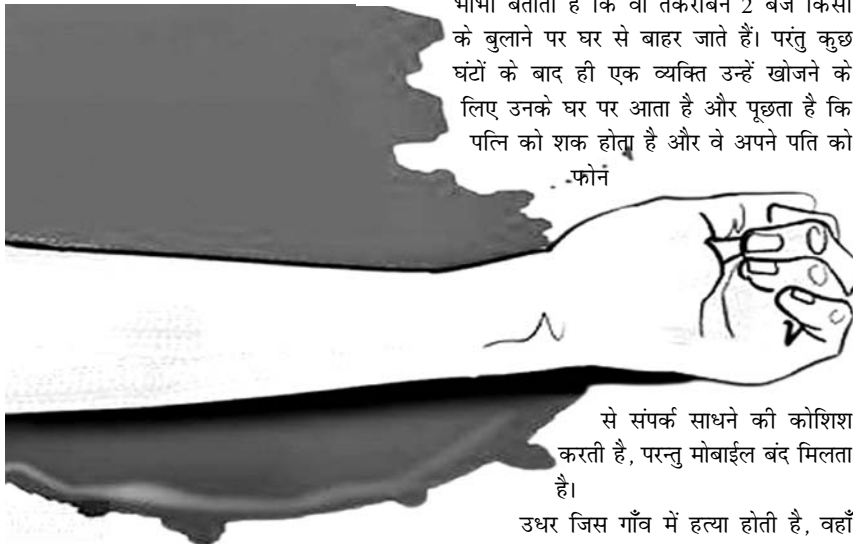 भाभी बताती है कि वो तकरीबन 2 बजे किसी
के बुलाने पर घर से बाहर जाते हैं। परंतु कुछ
घंटों के बाद ही एक व्यक्ति उन्हें खोजने के
लिए उनके घर पर आता है और पूछता है कि
पत्नि को शक होता है और वे अपने पति को
फोन
से संपर्क साधने की कोशिश
करती है, परन्तु मोबाईल बंद मिलता
है।
उधर जिस गाँव में हत्या होती है, वहाँ